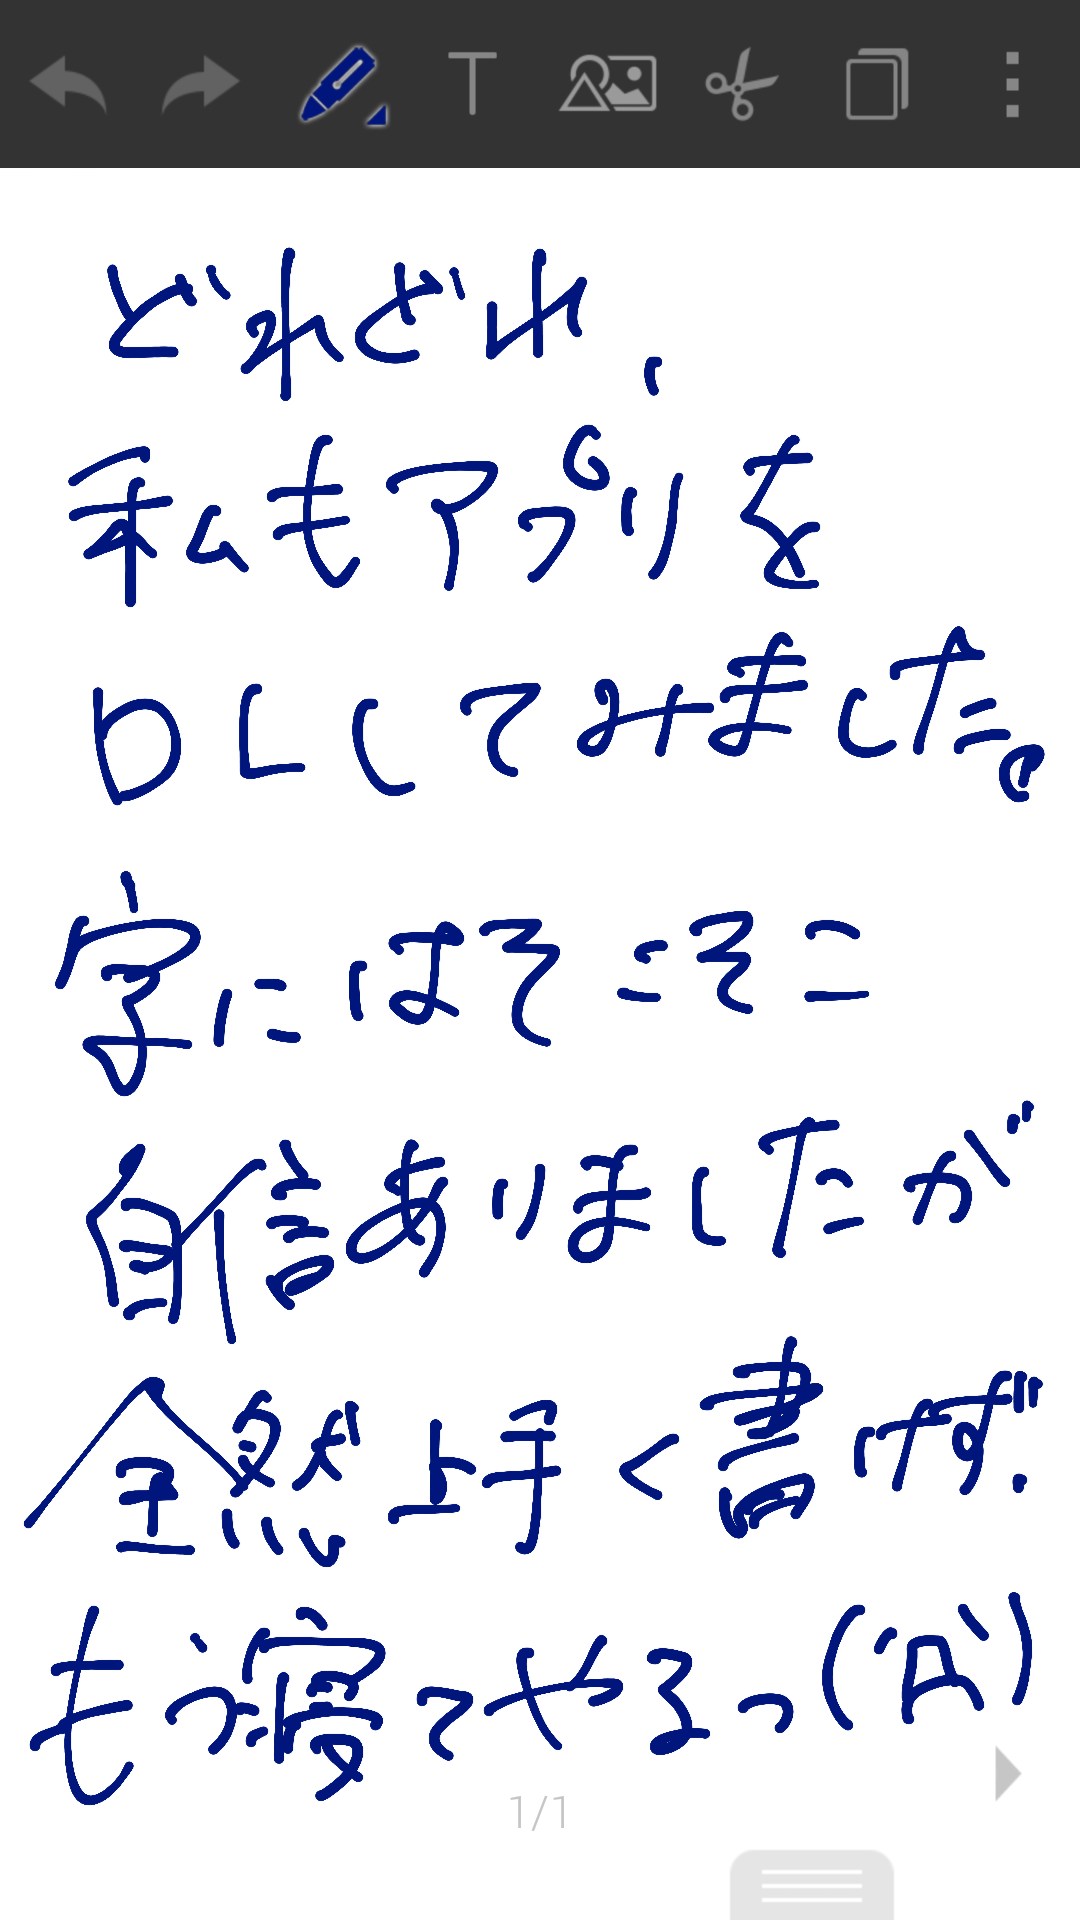 T
どれどれ、
私もアプリを
DLしてみました。
字にはそこそこ
自信ありましたが
全然上手く書けず.
もう寝てやるっ(`Д´)
1/1